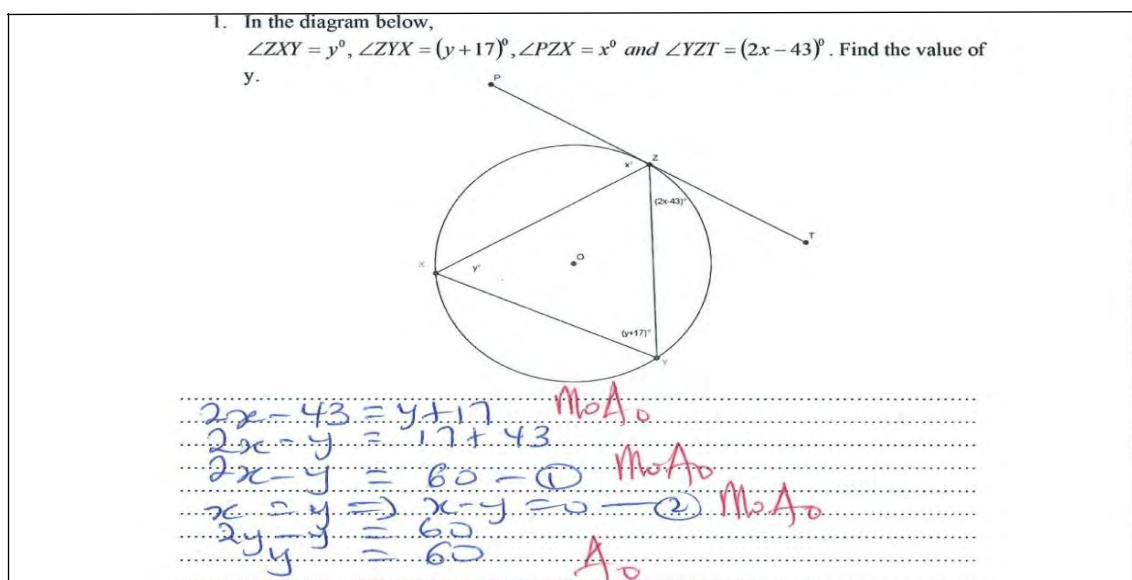 1. In the diagram below,
∠ZXY = y⁰, ∠ZYX = (y+17)⁰, ∠PZX = x⁰ and ∠YZT = (2x−43)⁰. Find the value of
y.
P
Z
x°
(2x-43)°
T
O
X
y°
(y+17)°
Y
2x − 43 = y + 17 M₀A₀
2x − y = 17 + 43
2x − y = 60 — ① M₀A₀
x = y ⇒ x − y = 0 — ② M₀A₀
2y − y = 60
y = 60 A₀